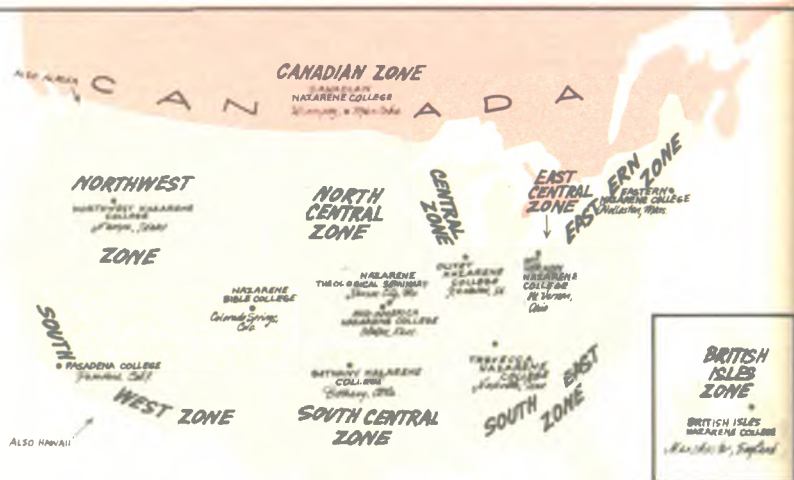 ALSO ALASKA
CANADA
CANADIAN ZONE
CANADIAN
NAZARENE COLLEGE
Winnipeg, Manitoba
NORTHWEST
NORTHWEST NAZARENE
COLLEGE
Nampa, Idaho
ZONE
NORTH
CENTRAL
ZONE
CENTRAL
ZONE
EAST
CENTRAL
ZONE
EASTERN ZONE
EASTERN
NAZARENE COLLEGE
Wollaston, Mass.
NAZARENE
BIBLE COLLEGE
Colorado Springs,
Colo.
NAZARENE
THEOLOGICAL SEMINARY
Kansas City, Mo.
MID-AMERICA
NAZARENE COLLEGE
Olathe, Kans.
OLIVET
NAZARENE
COLLEGE
Kankakee, Ill.
MT. VERNON
NAZARENE
COLLEGE
Mt. Vernon,
Ohio
SOUTH
WEST ZONE
PASADENA COLLEGE
Pasadena, Calif.
ALSO HAWAII
BETHANY NAZARENE
COLLEGE
Bethany, Okla.
SOUTH CENTRAL
ZONE
TREVECCA
NAZARENE
COLLEGE
Nashville, Tenn.
SOUTH EAST
ZONE
BRITISH
ISLES
ZONE
BRITISH ISLES
NAZARENE COLLEGE
Manchester, England